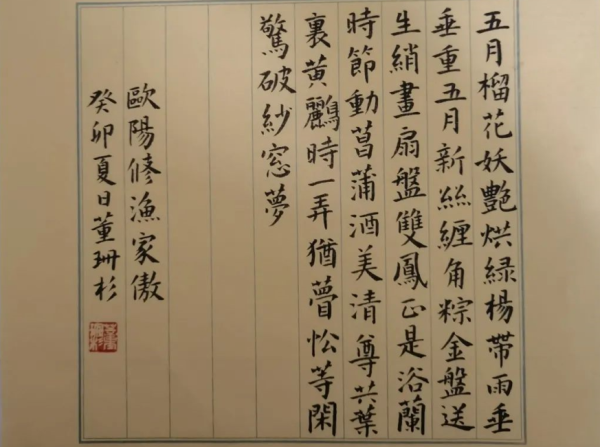 五月榴花妖艷烘綠楊帶雨垂
垂重五月新絲纏角粽金盤送
生綃畫扇盤雙鳳正是浴蘭
時節動菖蒲酒美清尊共葉
裏黃鸝時一弄猶瞢忪等閑
驚破紗窓夢
歐陽修漁家傲
癸卯夏日董珊杉